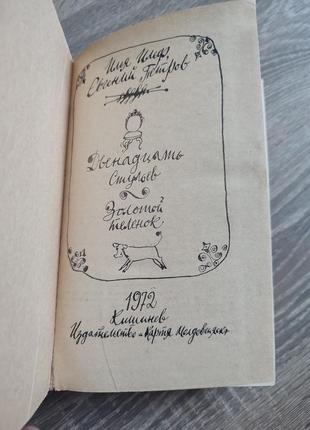 Илья Ильф,
Евгений Петров
Двенадцать
стульев
Золотой
теленок
1972
Кишинев
Издательство «Картя Молдовеняскэ»